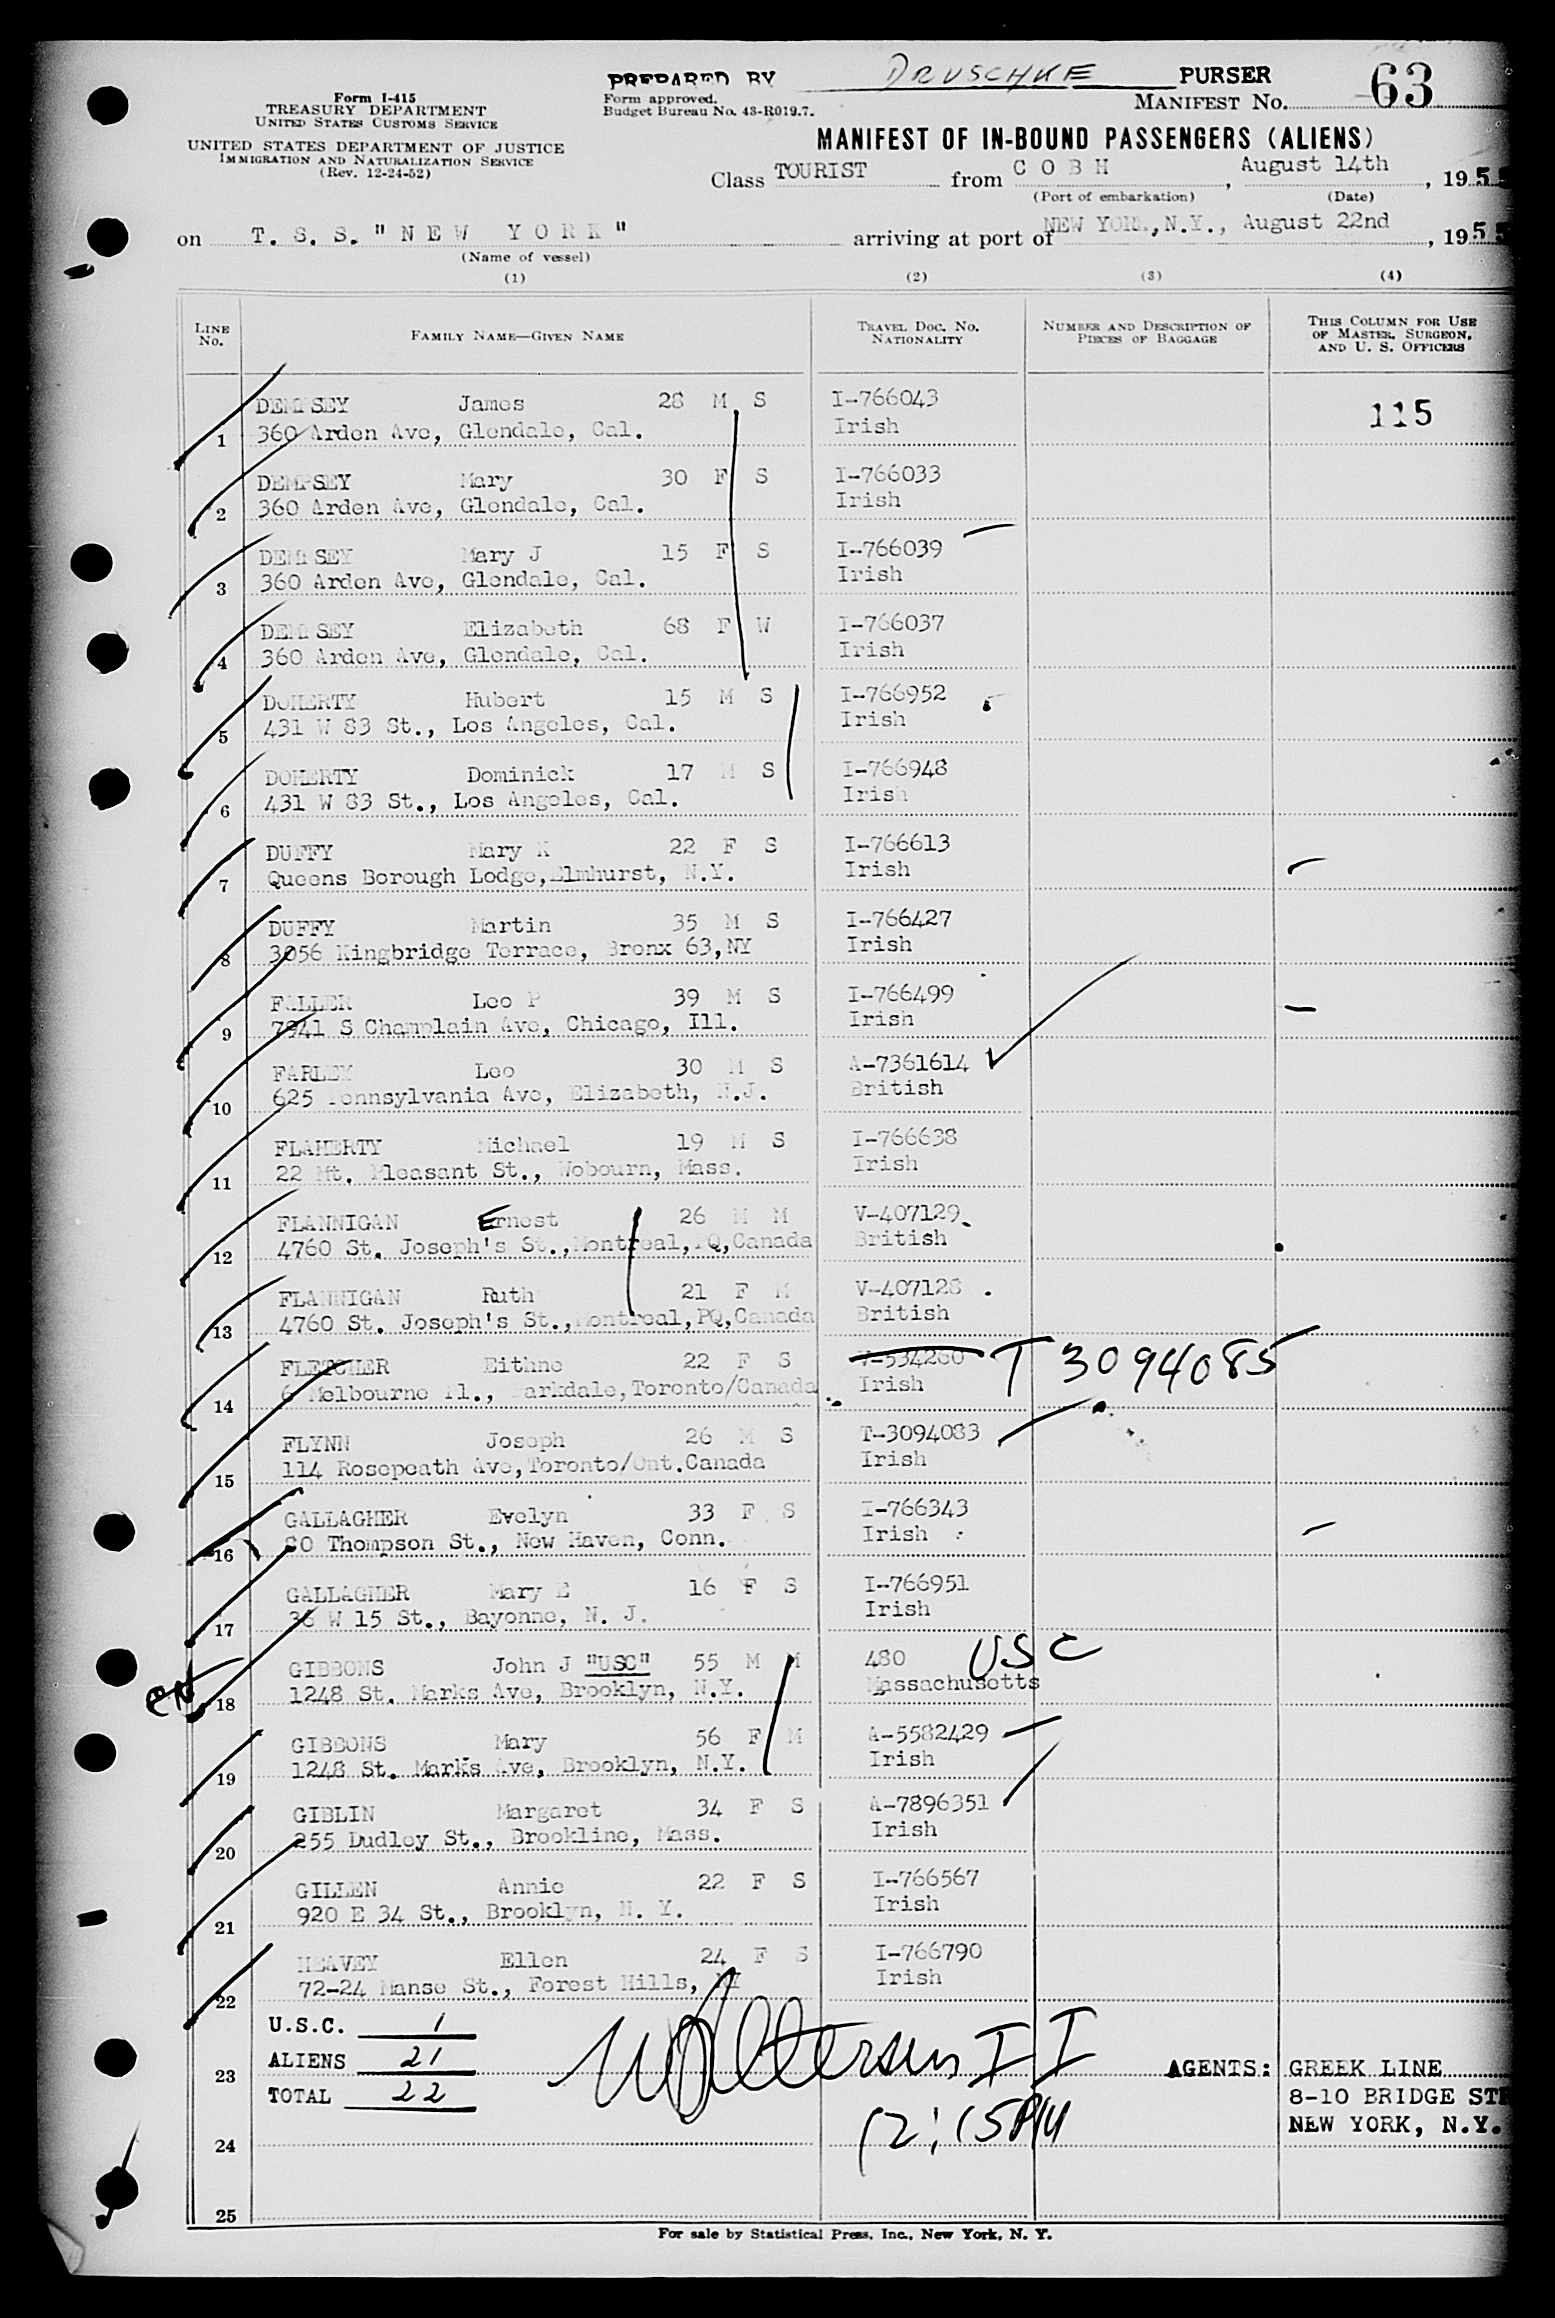 PREPARED BY DRUSCHKE PURSER
Form I-415
TREASURY DEPARTMENT
UNITED STATES CUSTOMS SERVICE
Form approved.
Budget Bureau No. 43-R019.7.
MANIFEST No. 63
UNITED STATES DEPARTMENT OF JUSTICE
IMMIGRATION AND NATURALIZATION SERVICE
(Rev. 12-24-52)
MANIFEST OF IN-BOUND PASSENGERS (ALIENS)
Class TOURIST from COBH, August 14th, 1955
(Port of embarkation) (Date)
on T. S. S. "NEW YORK" arriving at port of NEW YORK, N.Y., August 22nd, 1955
(Name of vessel)
(1) (2) (3) (4)
LINE No. FAMILY NAME—GIVEN NAME TRAVEL DOC. No. NATIONALITY NUMBER AND DESCRIPTION OF PIECES OF BAGGAGE THIS COLUMN FOR USE OF MASTER, SURGEON, AND U. S. OFFICERS
DEMPSEY James 28 M S I-766043 115
1 360 Arden Ave, Glendale, Cal. Irish
DEMPSEY Mary 30 F S I-766033
2 360 Arden Ave, Glendale, Cal. Irish
DEMPSEY Mary J 15 F S I-766039
3 360 Arden Ave, Glendale, Cal. Irish
DEMPSEY Elizabeth 68 F W I-766037
4 360 Arden Ave, Glendale, Cal. Irish
DOHERTY Hubert 15 M S I-766952
5 431 W 83 St., Los Angeles, Cal. Irish
DOHERTY Dominick 17 M S I-766948
6 431 W 83 St., Los Angeles, Cal. Irish
DUFFY Mary K 22 F S I-766613
7 Queens Borough Lodge, Elmhurst, N.Y. Irish
DUFFY Martin 35 M S I-766427
8 3056 Kingbridge Terrace, Bronx 63, NY Irish
FALLER Leo P 39 M S I-766499
9 7941 S Champlain Ave, Chicago, Ill. Irish
FARLEY Leo 30 M S A-7361614
10 625 Pennsylvania Ave, Elizabeth, N.J. British
FLAHERTY Michael 19 M S I-766638
11 22 Mt. Pleasant St., Wobourn, Mass. Irish
FLANNIGAN Ernest 26 M M V-407129
12 4760 St. Joseph's St., Montreal, PQ, Canada British
FLANNIGAN Ruth 21 F M V-407128
13 4760 St. Joseph's St., Montreal, PQ, Canada British
FLETCHER Eithne 22 F S V-534260 T 3094085
14 6 Melbourne Pl., Parkdale, Toronto/Canada Irish
FLYNN Joseph 26 M S T-3094083
15 114 Rosepeath Ave, Toronto/Ont. Canada Irish
GALLAGHER Evelyn 33 F S I-766343
16 80 Thompson St., New Haven, Conn. Irish
GALLAGHER Mary E 16 F S I-766951
17 36 W 15 St., Bayonne, N. J. Irish
GIBBONS John J "USC" 55 M M 480 USC
18 1248 St. Marks Ave, Brooklyn, N.Y. Massachusetts
GIBBONS Mary 56 F M A-5582429
19 1248 St. Marks Ave, Brooklyn, N.Y. Irish
GIBLIN Margaret 34 F S A-7896351
20 255 Dudley St., Brookline, Mass. Irish
GILLEN Annie 22 F S I-766567
21 920 E 34 St., Brooklyn, N. Y. Irish
HEAVEY Ellen 24 F S I-766790
22 72-24 Manse St., Forest Hills, NY Irish
U.S.C. 1
23 ALIENS 21 AGENTS: GREEK LINE
TOTAL 22 8-10 BRIDGE
NEW YORK, N.Y.
24 12:15PM
25
For sale by Statistical Press, Inc., New York, N. Y.